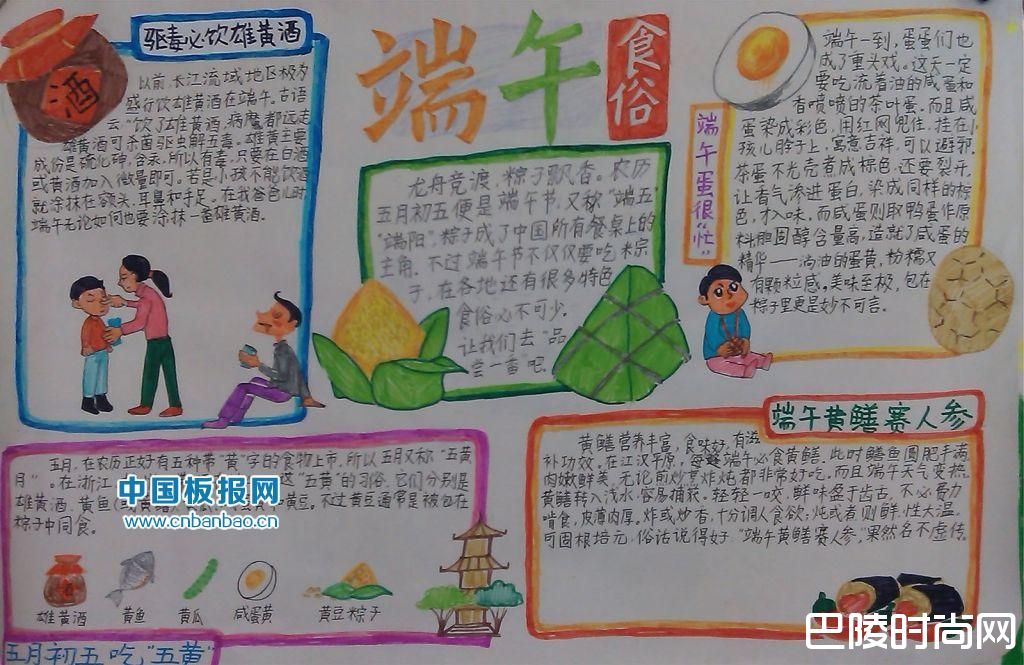 驱毒必饮雄黄酒
酒
以前,长江流域地区极为
盛行饮雄黄酒在端午。古语
云"饮了雄黄酒,病魔都远走
雄黄酒可杀菌驱虫解五毒。雄黄主要
成份是硫化砷,含汞,所以有毒,只要在白酒
或黄酒加入微量即可。若是小孩不能饮酒
就涂抹在额头、耳鼻和手足。在我爸爸儿时
端午无论如何也要涂抹一番雄黄酒。
端午
食俗
龙舟竞渡,粽子飘香。农历
五月初五便是端午节,又称"端五"
"端阳"粽子成了中国所有餐桌上的
主角。不过端午节不仅仅要吃粽
子,在各地还有很多特色
食俗必不可少。
让我们去"品
尝一番"吧.
端午蛋很"忙"
端午一到,蛋蛋们也
成了重头戏。这天一定
要吃流着油的咸蛋和
香喷喷的茶叶蛋。而且咸
蛋染成彩色,用红网兜住,挂在小
孩儿脖子上,寓意吉祥,可以避邪。
茶蛋不光壳煮成棕色,还要裂开,
让香气渗进蛋白,染成同样的棕
色,才入味。而咸蛋则取鸭蛋作原
料胆固醇含量高,造就了咸蛋的
精华——淌油的蛋黄,粉糯又
有颗粒感。美味至极,包在
粽子里更是妙不可言。
五月,在农历正好有五种带"黄"字的食物上市,所以五月又称"五黄
月"。在浙江
这"五黄"的习俗。它们分别是
雄黄酒、黄鱼(或黄
黄豆。不过黄豆通常是被包在
粽子中同食。
中国板报网
www.cnbanbao.cn
雄黄酒 黄鱼 黄瓜 咸蛋黄 黄豆粽子
五月初五吃"五黄"
端午黄鳝赛人参
黄鳝营养丰富,食味好,有滋
补功效。在江汉平原,每逢端午必食黄鳝。此时鳝鱼圆肥丰满,
肉嫩鲜美。无论煎炒烹炸炖都非常好吃。而且端午天气变热,
黄鳝转入浅水,容易捕获。轻轻一咬,鲜味溢于齿舌,不必费力
啃食,皮薄肉厚。炸或炒香,十分调人食欲;炖或煮则鲜,性大温,
可固根培元,俗话说得好"端午黄鳝赛人参,"果然名不虚传。
巴陵时尚网